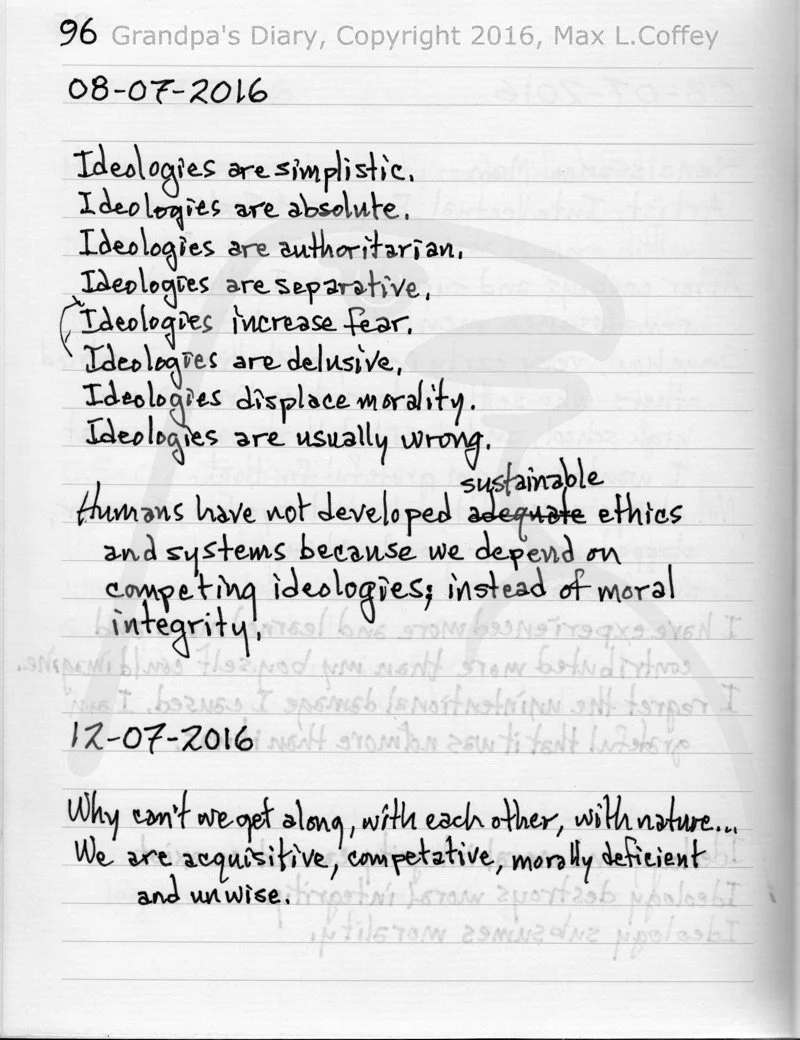 96 Grandpa's Diary, Copyright 2016, Max L.Coffey
08-07-2016
Ideologies are simplistic.
Ideologies are absolute.
Ideologies are authoritarian.
Ideologies are separative.
Ideologies increase fear.
Ideologies are delusive.
Ideologies displace morality.
Ideologies are usually wrong.
sustainable
Humans have not developed adequate ethics
and systems because we depend on
competing ideologies; instead of moral
integrity.
12-07-2016
Why can't we get along, with each other, with nature...
We are acquisitive, competative, morally deficient
and unwise.